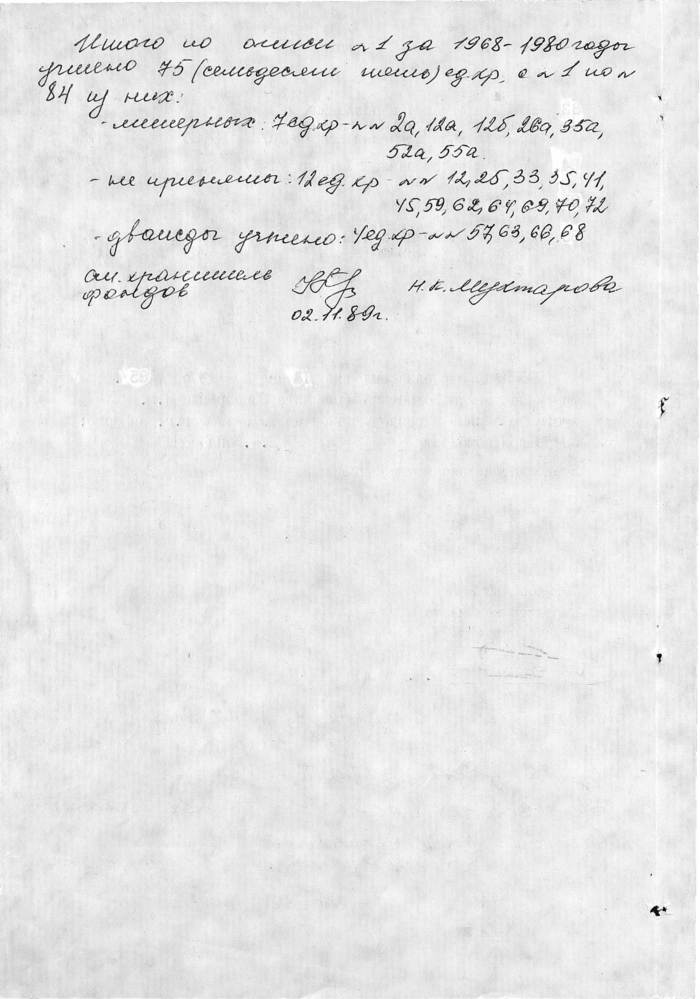 Итого по описи №1 за 1968-1980 годы
учтено 75 (семьдесят пять) ед.хр. с №1 по №
84 из них:
- литерных: 7 ед.хр - №№ 2а, 12а, 12б, 26а, 35а,
52а, 55а.
- не приняты: 12 ед. хр - №№ 12, 25, 33, 35, 41,
45, 59, 62, 64, 69, 70, 72
- дважды учтено: 4 ед.хр - №№ 57, 63, 66, 68
ст. хранитель
фондов
Н.К. Мухтарова
02.11.89г.